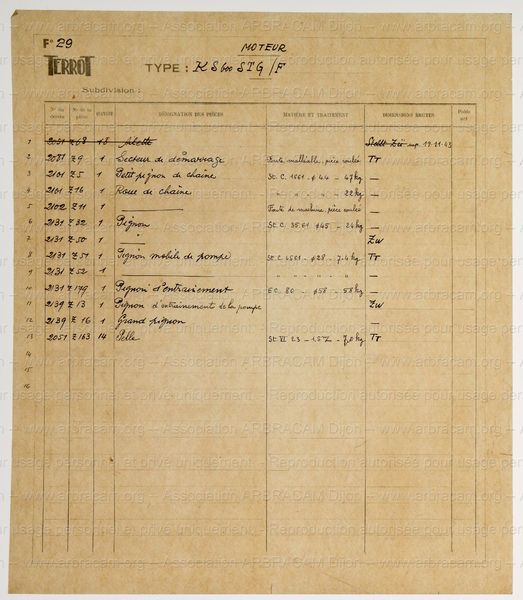 F° 29
MOTEUR
TERROT
TYPE : KS600 STG/F
Subdivision :
DÉSIGNATION DES PIÈCES MATIÈRE ET TRAITEMENT DIMENSIONS BRUTES Poids net
1 2051 Z 68 18 19.11.43
2 2081 Z 9 1 Secteur de démarrage Fonte malléable, pièce coulée Tr
3 2101 Z 5 1 Petit pignon de chaîne St. C. 1661 ø 44 – 47 kg —
4 2101 Z 16 1 Roue de chaîne " " " – 22 kg —
5 2102 Z 11 1 —— Fonte de machine, pièce coulée —
6 2131 Z 32 1 Pignon St. C. 35.61 ø 45 – 24 kg —
7 2131 Z 50 1 —— Zw
8 2131 Z 51 1 Pignon mobile de pompe St. C. 4561 – ø 28 – 7.4 kg Tr
9 2131 Z 52 1 —— " " " " —
10 2131 Z 179 1 Pignon d'entrainement E C. 80 – ø 58 – 58 kg —
11 2139 Z 13 1 Pignon d'entraînement de la pompe Zw
12 2139 Z 16 1 Grand pignon —
13 2051 Z 163 14 Pelle St. VI 23 – 1.5 Z – 7,0 kg Tr
14
15
16
www.arbracam.org – Association ARBRACAM Dijon – Reproduction autorisée pour usage personnel et privé uniquement